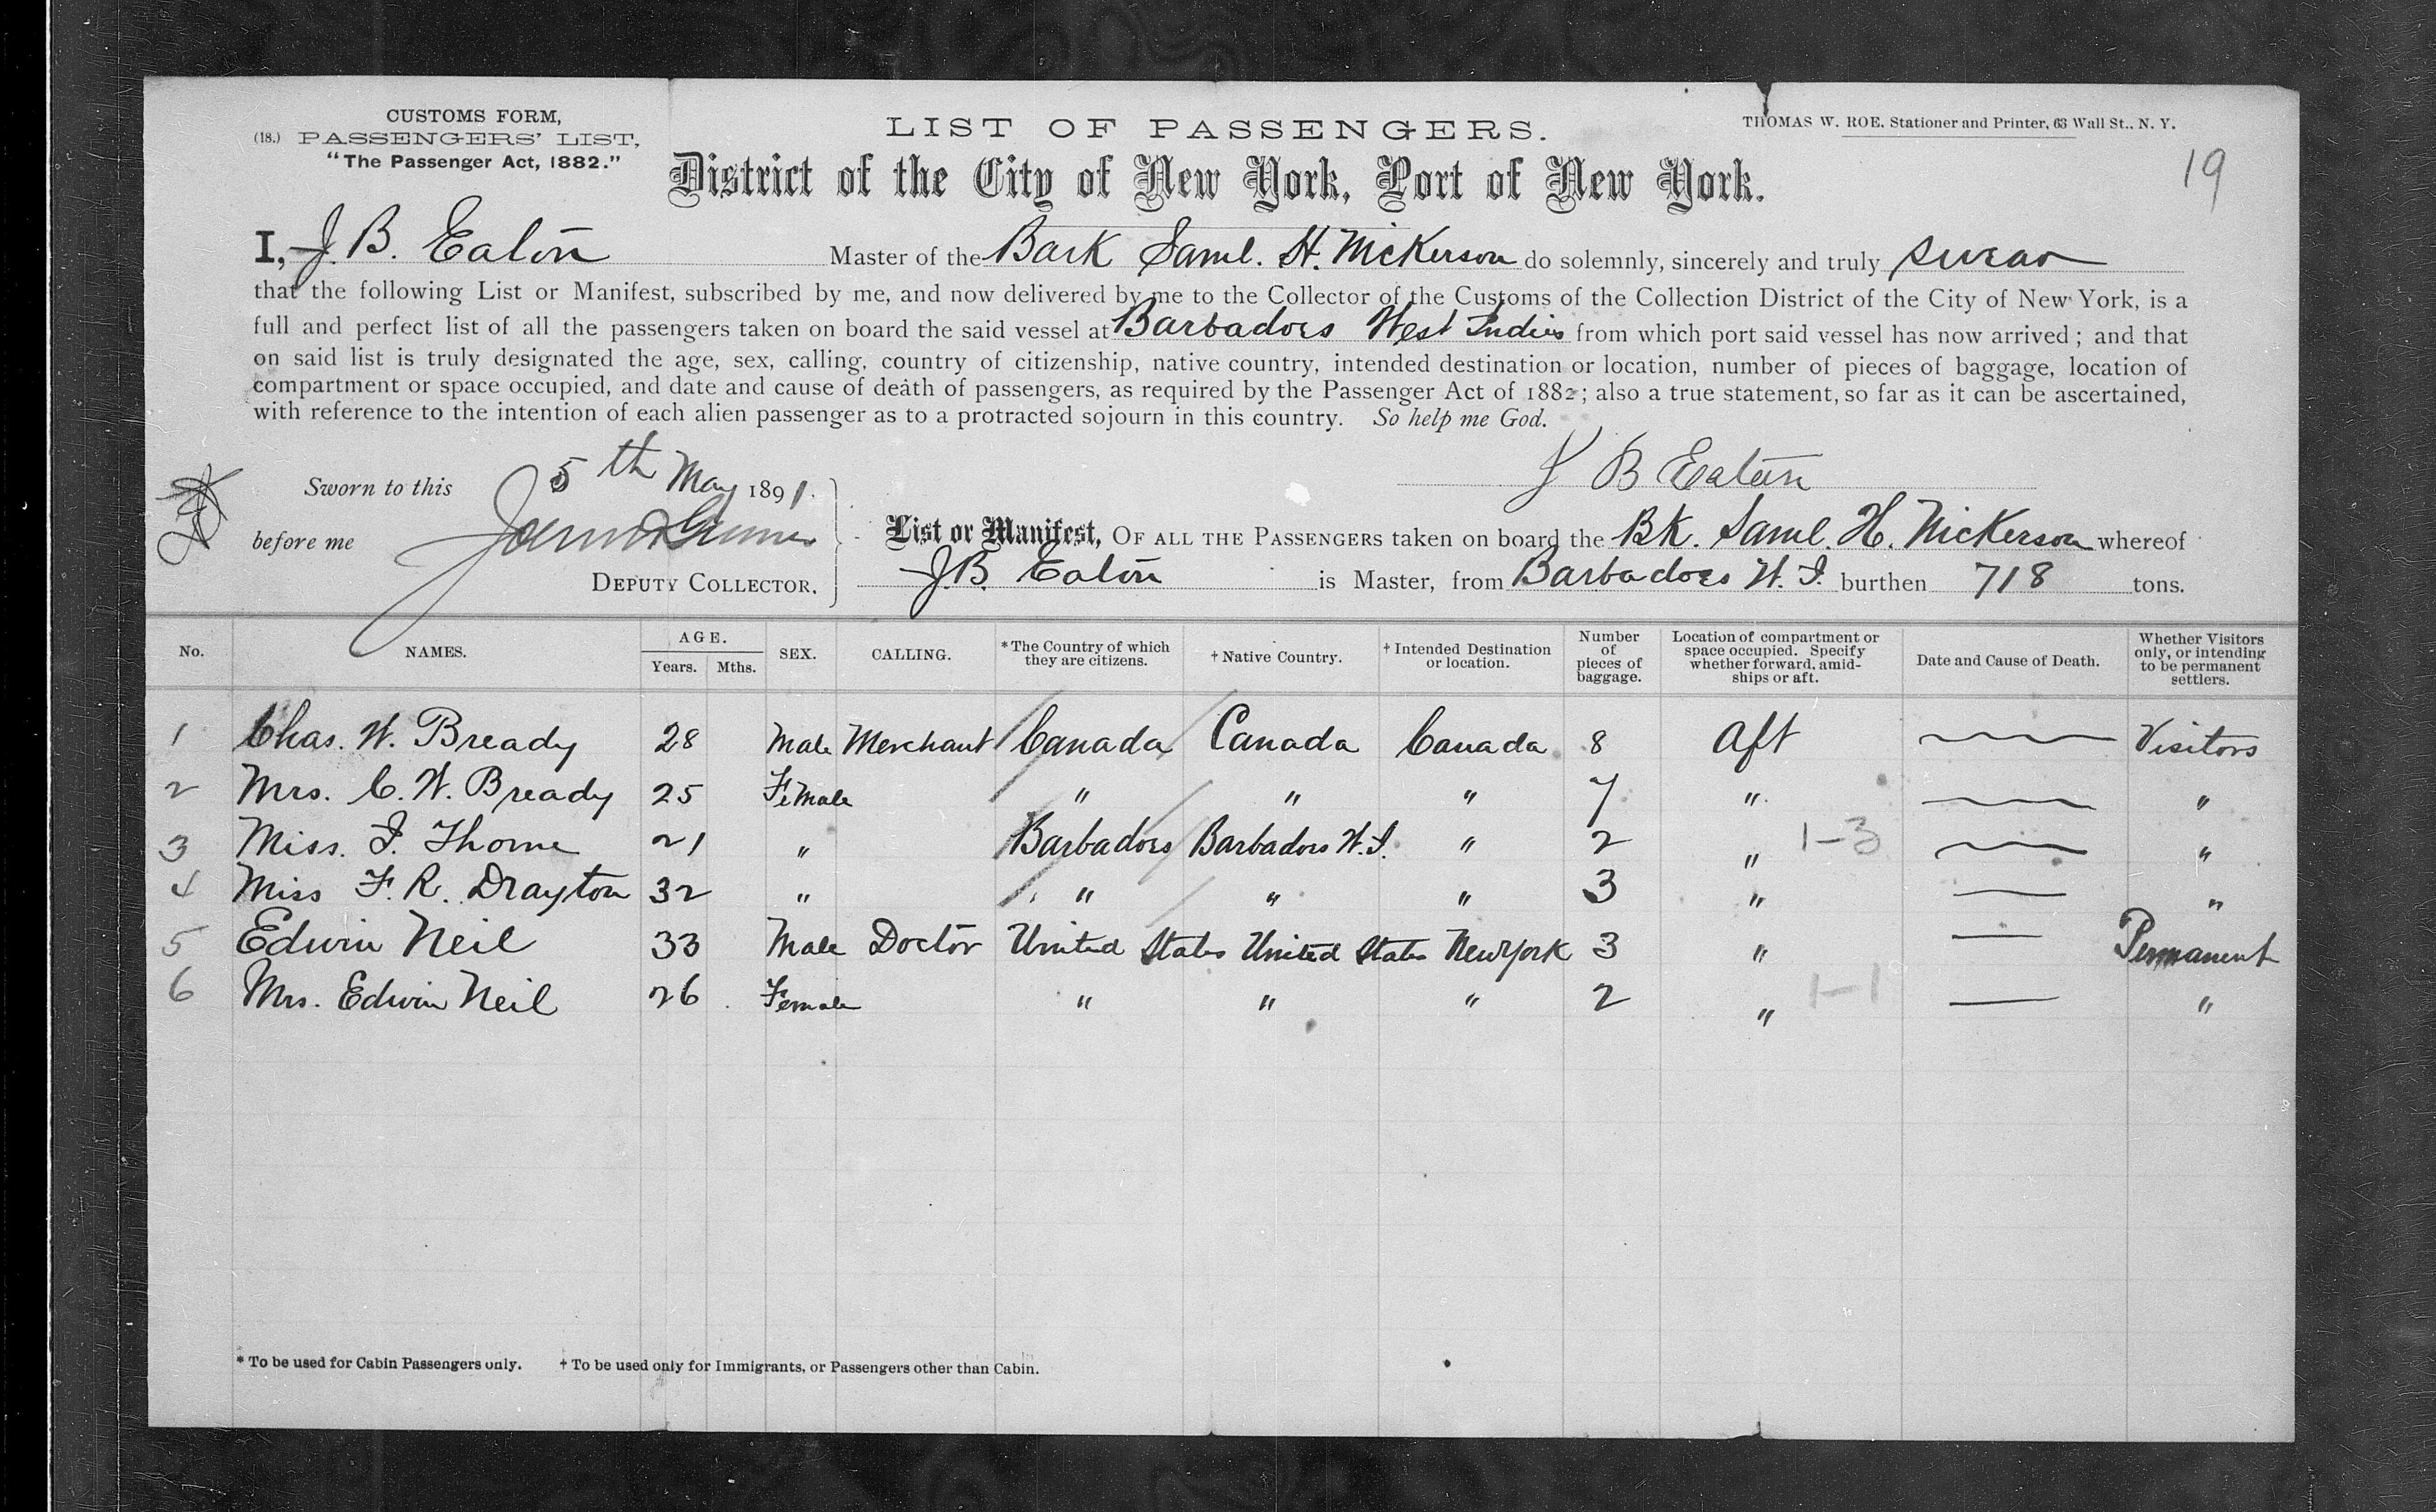 CUSTOMS FORM,
(18.) PASSENGERS' LIST,
"The Passenger Act, 1882."
LIST OF PASSENGERS.
THOMAS W. ROE. Stationer and Printer, 63 Wall St., N. Y.
19
District of the City of New York, Port of New York.
I, J. B. Eaton Master of the Bark Saml. H. Nickerson do solemnly, sincerely and truly swear
that the following List or Manifest, subscribed by me, and now delivered by me to the Collector of the Customs of the Collection District of the City of New York, is a
full and perfect list of all the passengers taken on board the said vessel at Barbadoes West Indies from which port said vessel has now arrived; and that
on said list is truly designated the age, sex, calling, country of citizenship, native country, intended destination or location, number of pieces of baggage, location of
compartment or space occupied, and date and cause of death of passengers, as required by the Passenger Act of 1882; also a true statement, so far as it can be ascertained,
with reference to the intention of each alien passenger as to a protracted sojourn in this country. So help me God.
Sworn to this 5th May 1891.
J B Eaton
before me
DEPUTY COLLECTOR.
List or Manifest, OF ALL THE PASSENGERS taken on board the Bk. Saml. H. Nickerson whereof
J.B. Eaton is Master, from Barbadoes W. I. burthen 718 tons.
No. NAMES. AGE. Years. Mths. SEX. CALLING. *The Country of which they are citizens. † Native Country. † Intended Destination or location. Number of pieces of baggage. Location of compartment or space occupied. Specify whether forward, amidships or aft. Date and Cause of Death. Whether Visitors only, or intending to be permanent settlers.
1 Chas. W. Bready 28 Male Merchant Canada Canada Canada 8 Aft Visitors
2 Mrs. C. W. Bready 25 Female " " " 7 " "
3 Miss. I. Thorne 21 " Barbadoes Barbadoes W. I. " 2 " 1-3 "
4 Miss F. R. Drayton 32 " " " " 3 " "
5 Edwin Neil 33 Male Doctor United States United States New York 3 " Permanent
6 Mrs. Edwin Neil 26 Female " " " 2 " 1-1 "
* To be used for Cabin Passengers only. † To be used only for Immigrants, or Passengers other than Cabin.